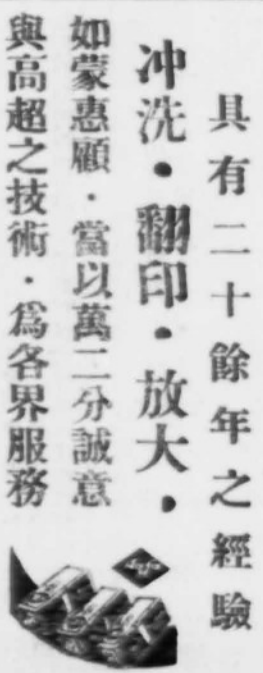 具有二十餘年之經驗
冲洗·翻印·放大,
如蒙惠顧·當以萬二分誠意
與高超之技術·為各界服務